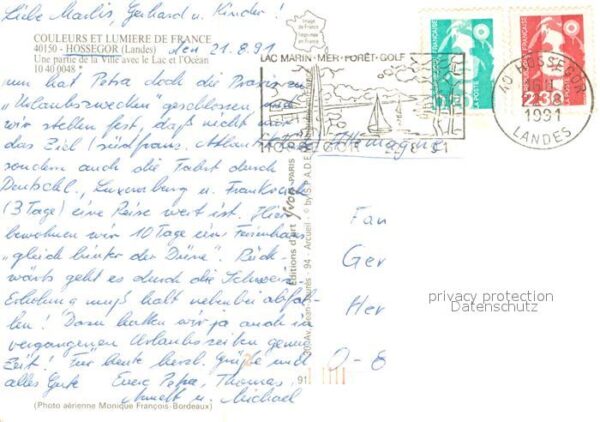 Liebe Marlis, Gerhard u. Kinder!
COULEURS ET LUMIERE DE FRANCE
40150 - HOSSEGOR (Landes)
den 21.8.91
Une partie de la Ville avec le Lac et l'Océan
10 40 0048 *
nun hat Petra doch die Praxis zu
"Urlaubszwecken geschlossen und
wir stellen fest, daß nicht nur
das Ziel (südfranz. Atlantik
sondern auch die Fahrt durch
Deutschl., Luxemburg u. Frankreich
(3 Tage) eine Reise wert ist. Hier
bewohnen wir 10 Tage ein Ferienhaus
"gleich hinter der Düne". Rück-
wärts geht es durch die Schweiz.
Erholung muß halt nebenbei abfal-
len! Dazu hatten wir ja auch in
vergangenen Urlaubszeiten genug
Zeit! Für heute herzl. Grüße und
alles Gute Eure Petra, Thomas,
Annett u. Michael
(Photo aérienne Monique François-Bordeaux)
Image de France
LAC MARIN-MER-FORÊT-GOLF
HOSSEGOR
40 HOSSEGOR
1991
LANDES
2,30
Editions d'art Yvon-PARIS
94 - Arcueil
91
Fam
Ger
Her
D-8
privacy protection
Datenschutz